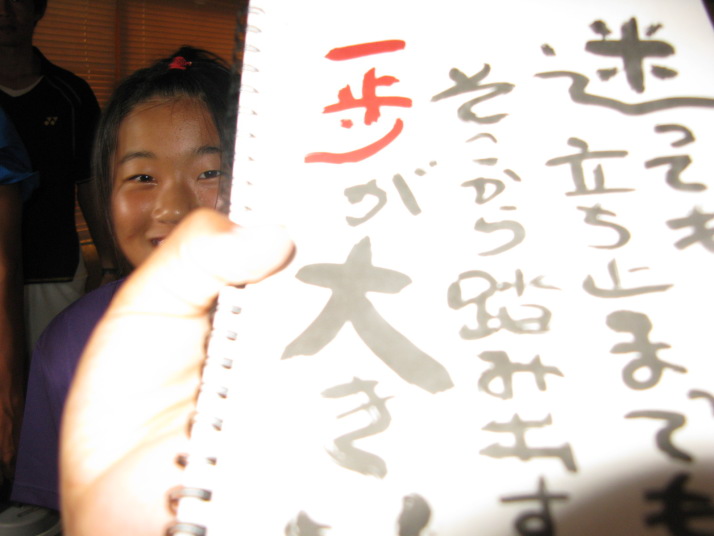 迷っても
立ち止まっても
そこから踏み出す
一歩が大きい